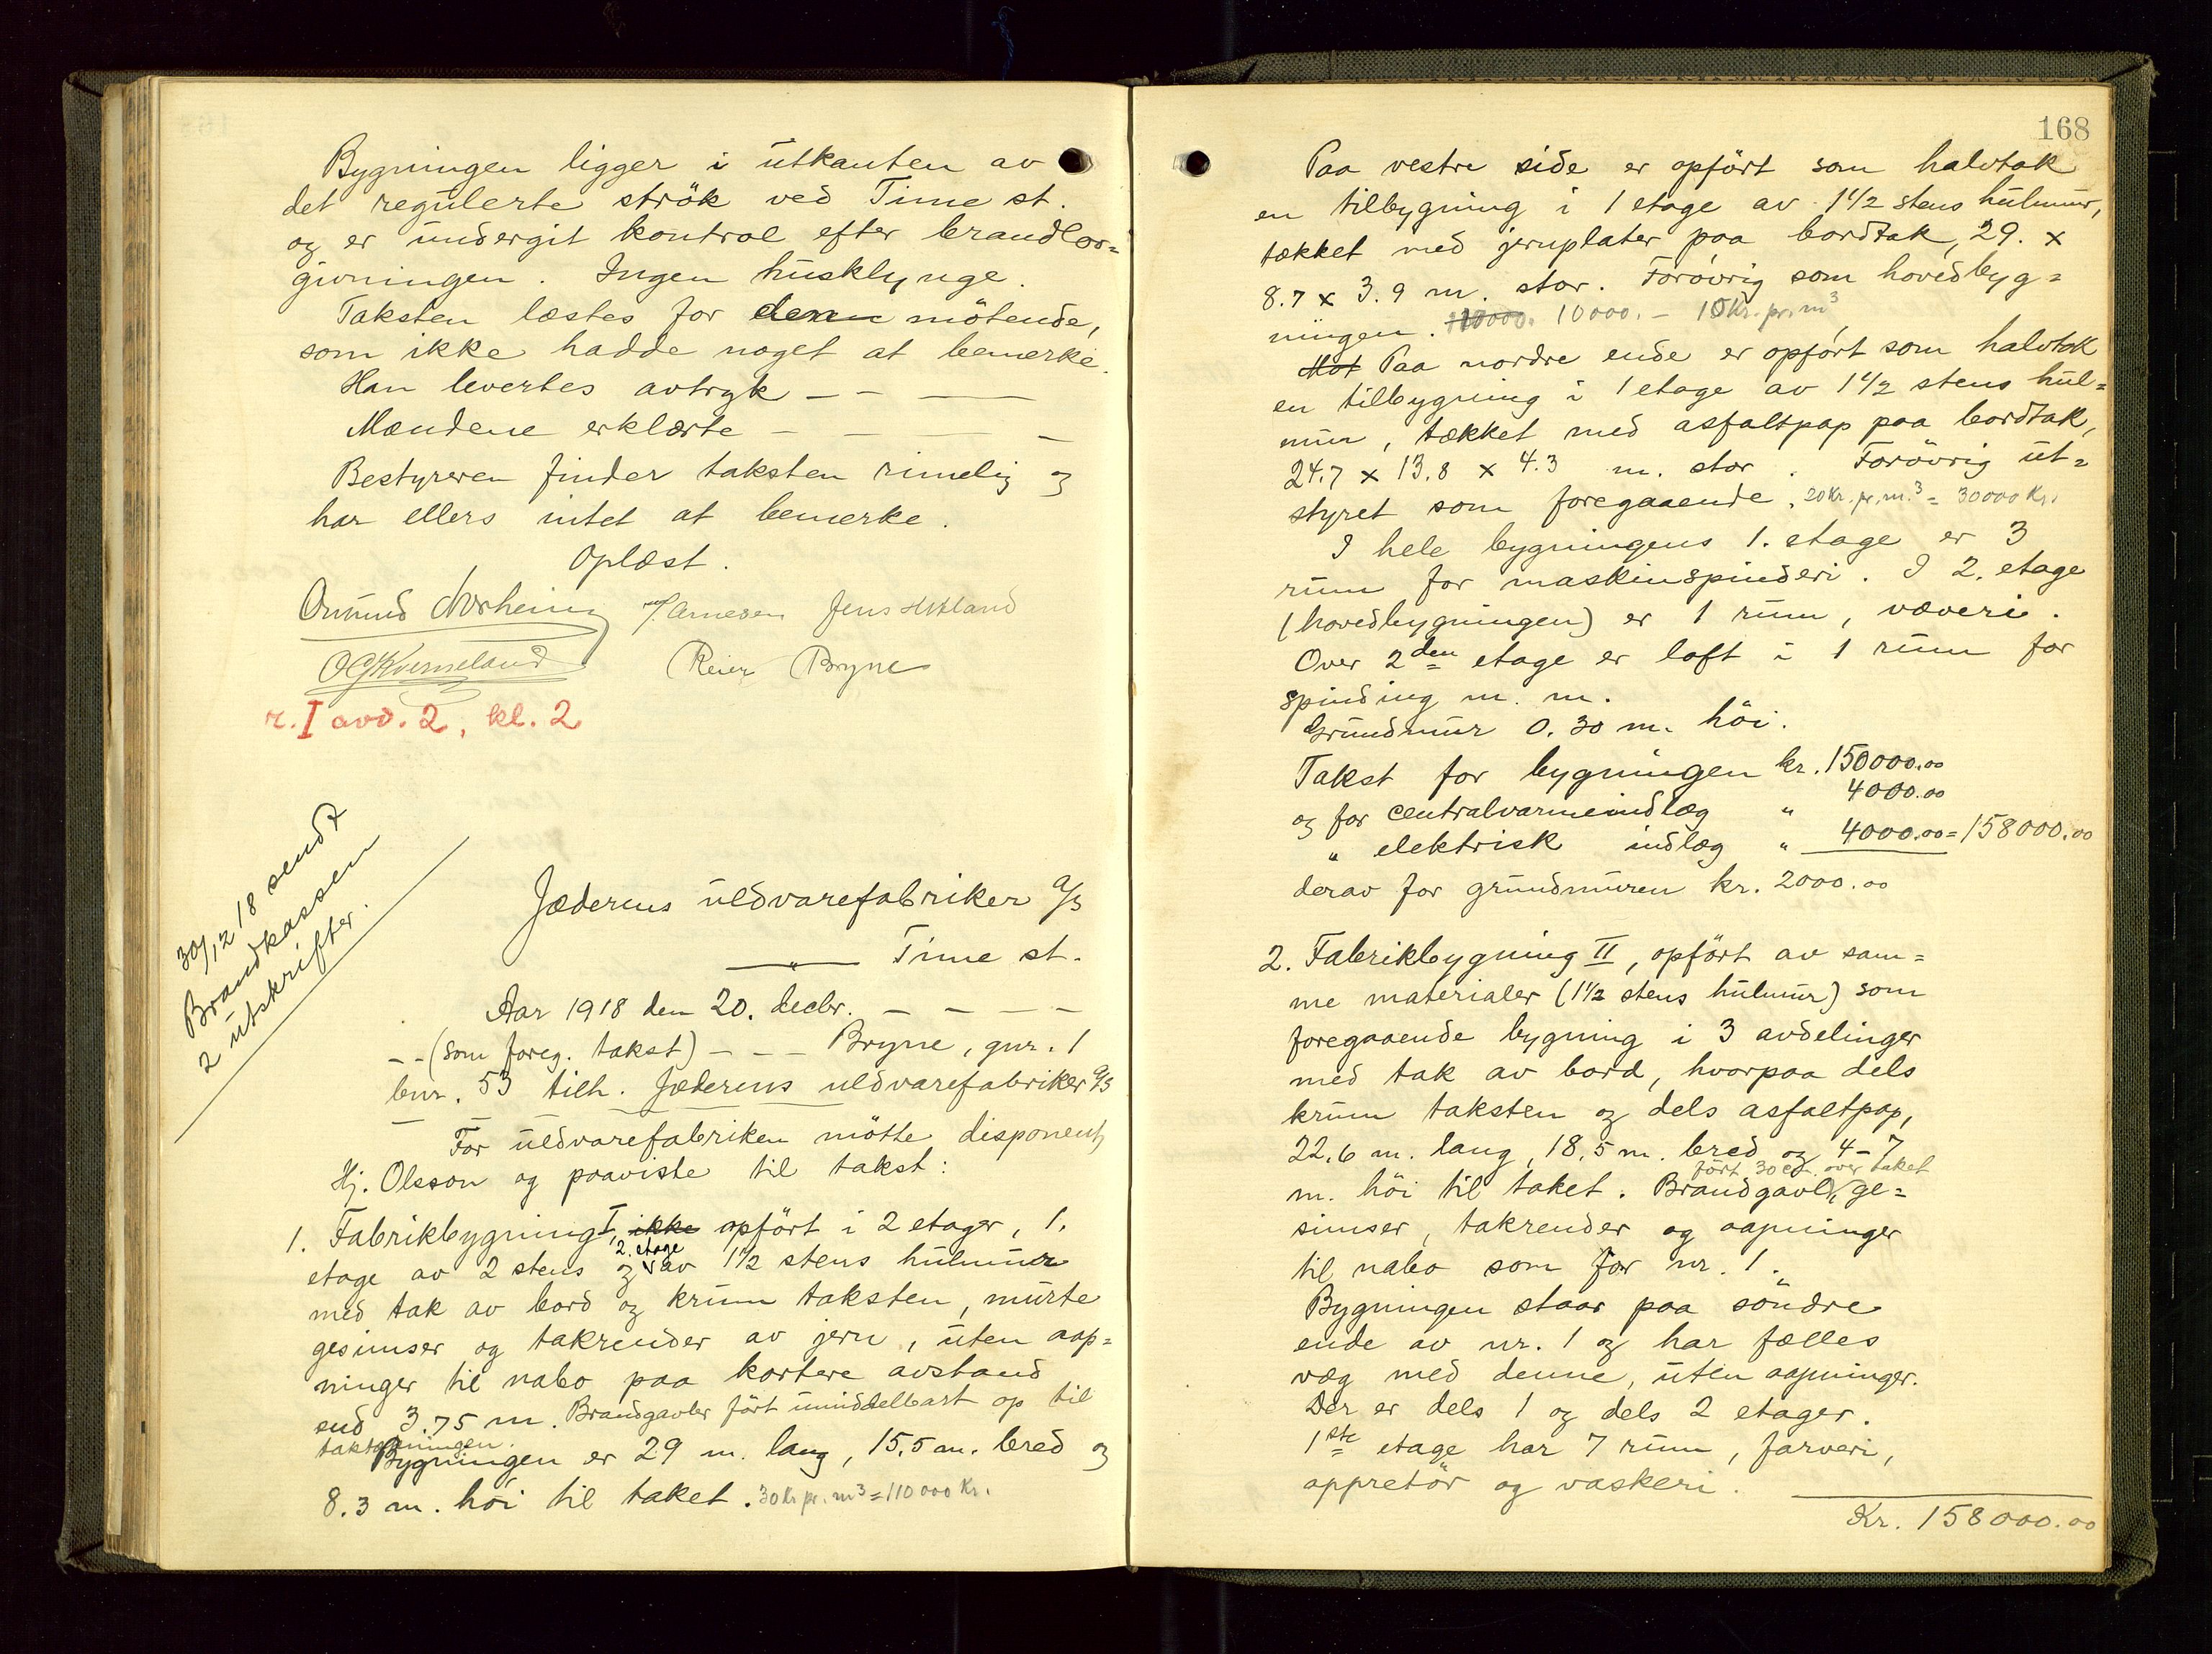 Bygningen ligger i utkanten av
det regulerte strök ved Time st.
og er undergit kontrol efter brandlov=
givningen. Ingen husklynge.
Taksten læstes for den mötende,
som ikke hadde noget at bemerke.
Han levertes avtryk — — —
Mændene erklærte — — — —
Bestyreren finder taksten rimelig og
har ellers intet at bemerke.
Oplæst.
Ommund Norheim T. Arnesen Jens Hetland
O G Kverneland Reier Bryne
r. I avd. 2, kl. 2
30/12 18 sendt
Brandkassen
2 utskrifter.
Jæderens uldvarefabriker A/S
—„— Time st.
Aar 1918 den 20. decbr. — — — —
— — (som foreg. takst) — — — Bryne, gnr. 1
bnr. 53 tilh. Jæderens uldvarefabriker A/S
— For uldvarefabriken mötte disponent
Hj. Olsson og paaviste til takst:
1. Fabrikbygning I, ikke opfört i 2 etager, 1.
etage av 2 stens og 2. etage av 1 1/2 stens hulmur
med tak av bord og krum taksten, murte
gesimser og takrender av jern, uten aap=
ninger til nabo paa kortere avstand
end 3.75 m. Brandgavler fört umiddelbart op til
taktækningen.
Bygningen er 29 m. lang, 15.5 m. bred og
8.3 m. höi til taket. 30 Kr pr. m3 = 110000 Kr.
168
Paa vestre side er opfört som halvtak
en tilbygning i 1 etage av 1 1/2 stens hulmur,
tækket med jernplater paa bordtak, 29. x
8.7 x 3.9 m. stor. Forövrig som hovedbyg=
ningen. 10000. 10000.— 10 Kr. pr. m3
Mot Paa nordre ende er opfört som halvtak
en tilbygning i 1 etage av 1 1/2 stens hul=
mur, tækket med asfaltpap paa bordtak,
24.7 x 13.8 x 4.3 m. stor. Forövrig ut=
styret som foregaaende. 20 Kr. pr. m.3 = 30000 Kr.
I hele bygningens 1. etage er 3
rum for maskinspinderi. I 2. etage
(hovedbygningen) er 1 rum, væveri.
Over 2den etage er loft i 1 rum for
spinding m. m.
Grundmur 0.30 m. höi.
Takst for bygningen kr. 150000.00
og for centralvarmeindlæg „ 4000.00
„ elektrisk indlæg „ 4000.00 = 158000.00
derav for grundmuren kr. 2000.00
2. Fabrikbygning II, opfört av sam=
me materialer (1 1/2 stens hulmur) som
foregaaende bygning i 3 avdelinger
med tak av bord, hvorpaa dels
krum taksten og dels asfaltpap,
22.6 m. lang, 18.5 m. bred og 4-7
fört 30 cm. over taket
m. höi til taket. Brandgavl, ge=
simser, takrender og aapninger
til nabo som for nr. 1.
Bygningen staar paa söndre
ende av nr. 1 og har fælles
væg med denne, uten aapninger.
Der er dels 1 og dels 2 etager.
1ste etage har 7 rum, farveri,
appretör og vaskeri.
Kr. 158000.00